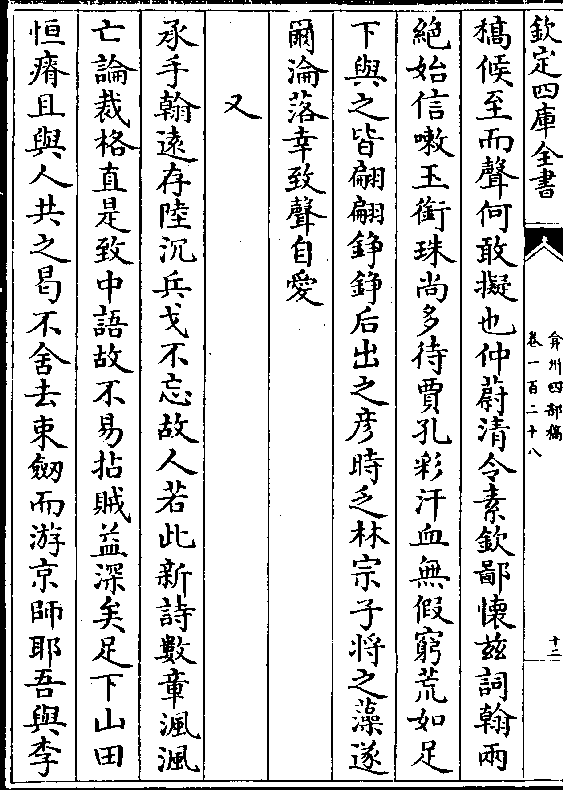 欽定四庫全書
弇州四部稿
卷一百二十八
十二
穚候至而聲何敢擬也仲蔚清令素欽鄙懷兹詞翰兩
絶始信嗽玉銜珠尚多待賈孔彩汗血無假窮荒如足
下與之皆翩翩錚錚后出之彦時乏林宗子將之藻遂
爾淪落幸致聲自愛
又
承手翰遠存陸沉兵戈不忘故人若此新詩數章渢渢
亡論裁格直是致中語故不易拈賊益深矣足下山田
恒瘠且與人共之曷不舍去束劒而游京師耶吾與李